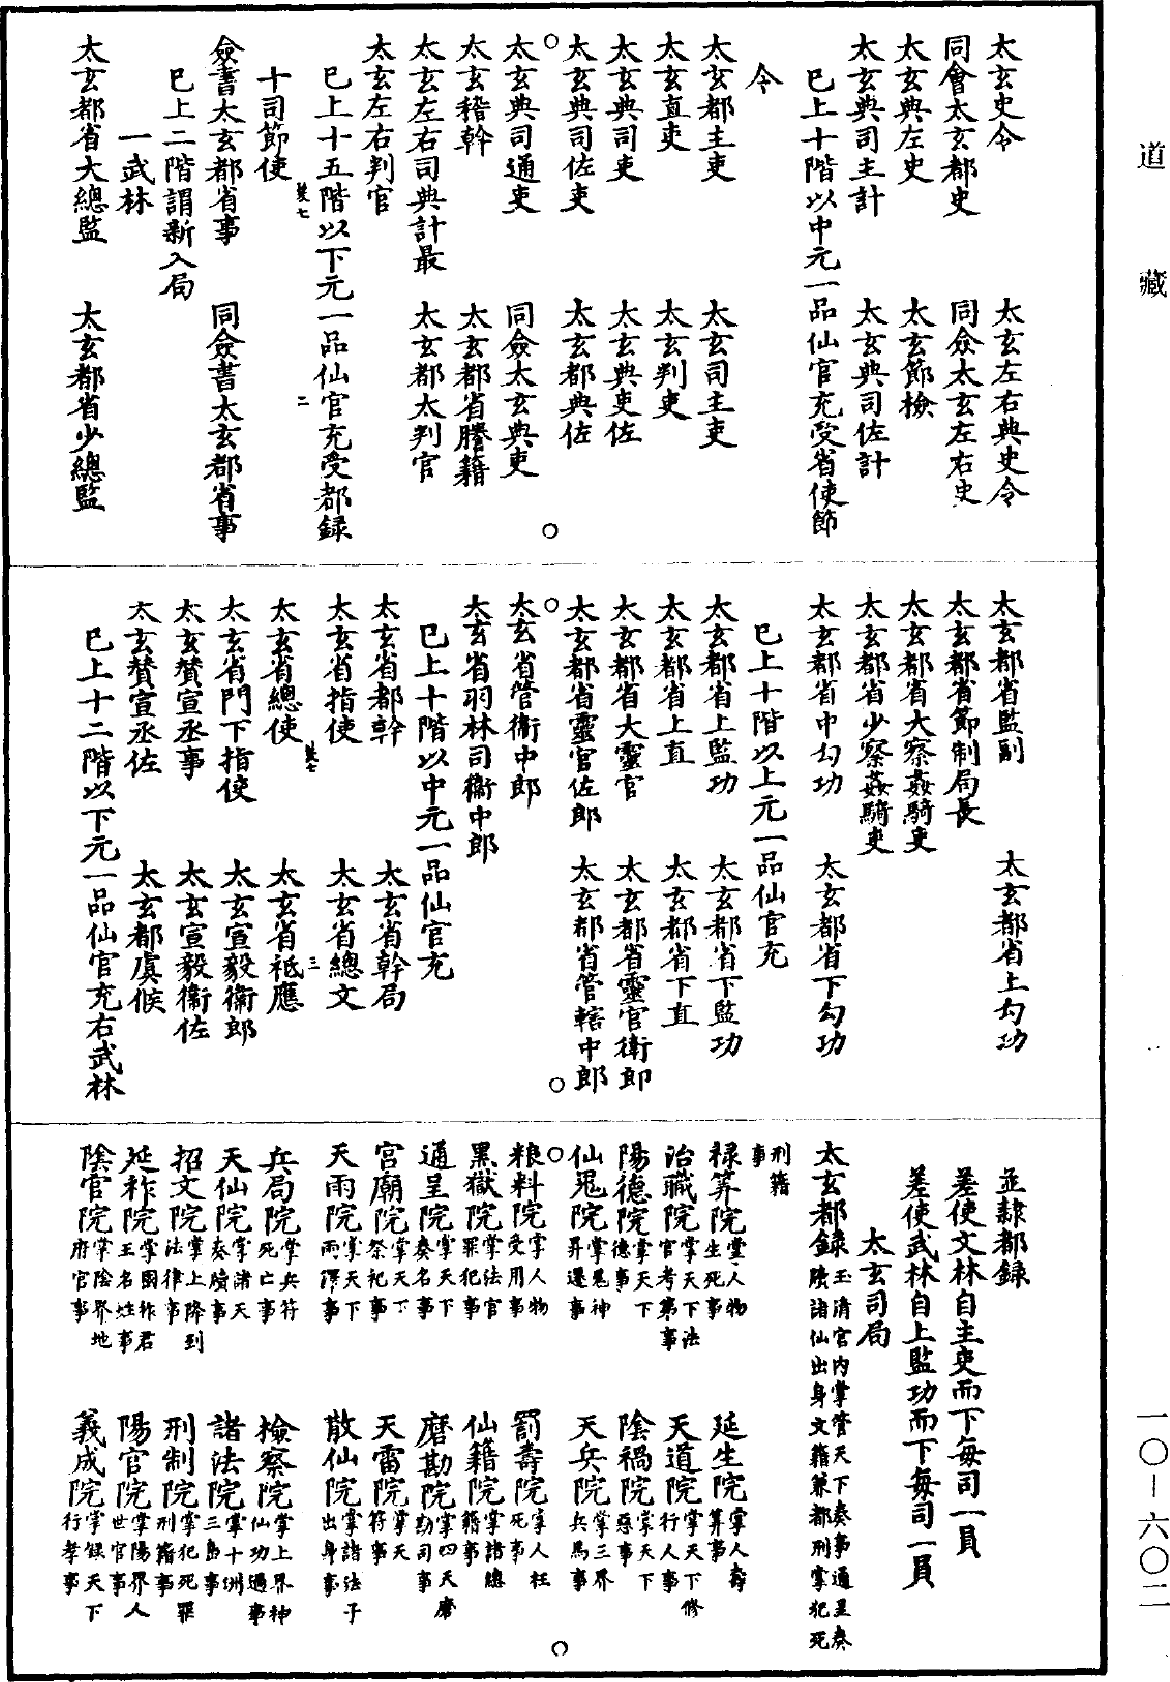 太玄史令　太玄左右典史令
同會太玄都史　同僉太玄左右史
太玄典左史　太玄節檢
太玄典司主計　太玄典司佐計
巳上十階以中元一品仙官充受省使節
令
太玄都主吏　太玄司主吏
太玄直吏　太玄判吏
太玄典司吏　太玄典吏佐
太玄典司佐吏　太玄都典佐
太玄典司通吏　同僉太玄典吏
太玄稽幹　太玄都省謄籍
太玄左右司典計最　太玄都大判官
太玄左右判官
巳上十五階以下元一品仙官充受都録
十司節使
僉書太玄都省事　同僉書太玄都省事
巳上二階謂新入局
一武林
太玄都省大總監　太玄都省少總監
太玄都省監副　太玄都省上勾功
太玄都省節制局長
太玄都省大察姦騎吏
太玄都省少察姦騎吏
太玄都省中勾功　太玄都省下勾功
巳上十階以上元一品仙官充
太玄都省上監功　太玄都省下監功
太玄都省上直　太玄都省下直
太玄都省大靈官　太玄都省靈官衛郎
太玄都省靈官佐郎　太玄都省管轄中郎
太玄省管衛中郎
太玄省羽林司衛中郎
巳上十階以中元一品仙官充
太玄省都幹　太玄省幹局
太玄省指使　太玄省總文
太玄省總使　太玄省祗應
太玄省門下指使　太玄宣毅衛郎
太玄贊宣丞事　太玄宣毅衛佐
太玄贊宣丞佐　太玄都虞候
巳上十二階以下元一品仙官充右武林
並隸都録
差使文林自主吏而下每司一員
差使武林自上監功而下每司一員
太玄司局
太玄都録玉清官内掌管天下奏事通呈奏牘諸仙出身文籍兼都刑掌犯死
刑籍事
禄筭院掌人物生死事　延生院掌人壽筭事
治職院掌天下法官考第事　天道院掌天下修行人事
陽德院掌天下德事　陰禍院掌天下惡事
仙鬼院掌鬼神昇遷事　天兵院掌三界兵馬事
粮料院掌人物受用事　罰壽院掌人枉死事
黑獄院掌法官罪犯事　仙籍院掌諸總籍事
通呈院掌天下奏名事　磨勘院掌四天磨勘司事
宮廟院掌天下祭祀事　天雷院掌天符事
天雨院掌天下雨澤事　散仙院掌諸法子出身事
兵局院掌兵符死亡事　檢察院掌上界神仙功過事
天仙院掌諸天奏牘事　諸法院掌十洲三島事
招文院掌上降到法律事　刑制院掌犯死罪刑籍事
延祚院掌國祚君王名姓事　陽官院掌陽界人世官事
陰官院掌陰界地府官事　義成院掌録天下行孝事
道藏
一〇—六〇二